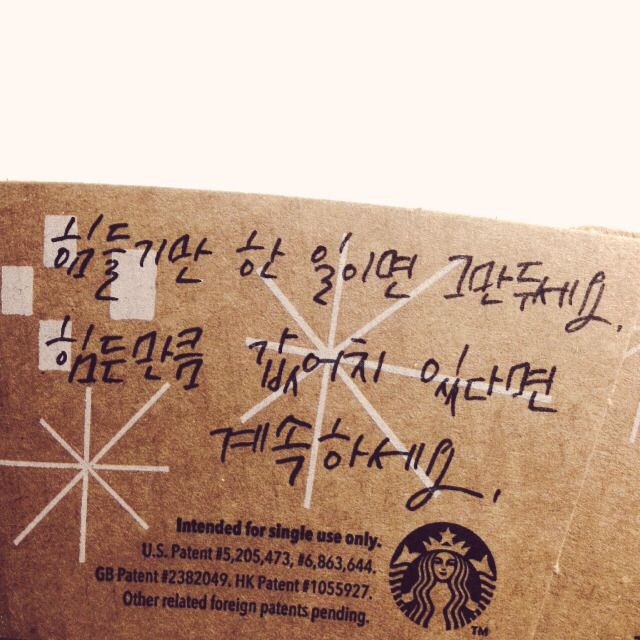 힘들기만 한 일이면 그만두세요.
힘든만큼 값어치 있다면
계속하세요.
Intended for single use only.
U.S. Patent #5,205,473, #6,863,644,
GB Patent #2382049, HK Patent #1055927,
Other related foreign patents pending.
TM